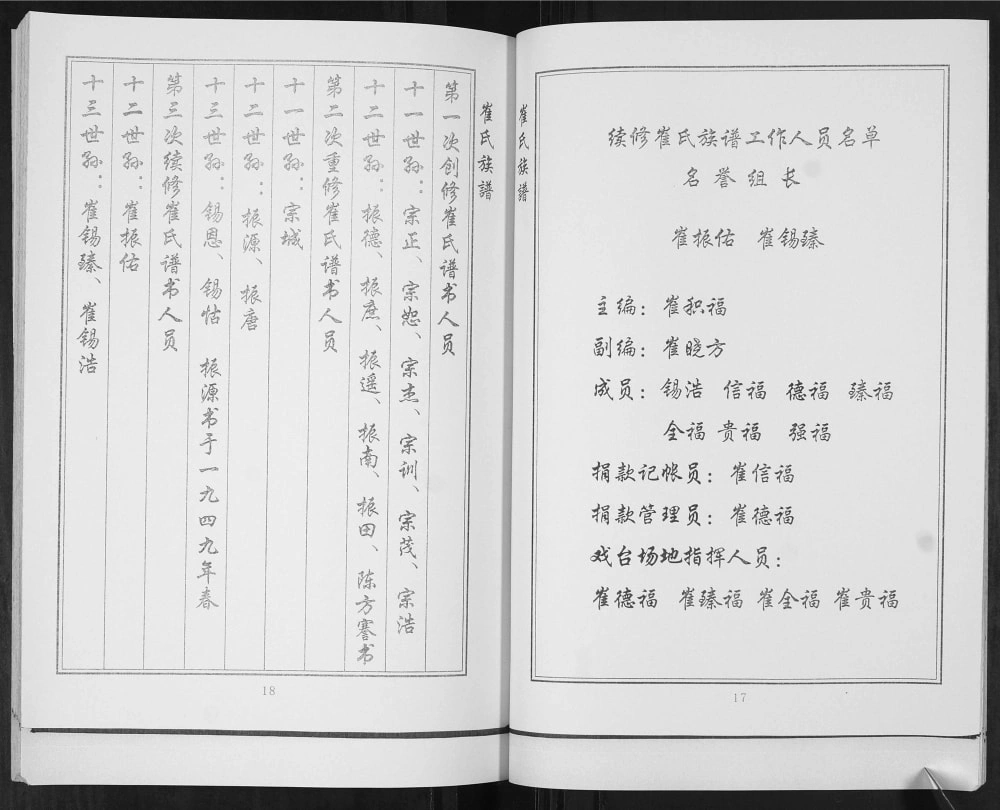 崔氏族譜
续修崔氏族谱工作人员名单
名誉组长
崔振佑 崔锡臻
主编：崔积福
副编：崔晓方
成员：锡浩 信福 德福 臻福
全福 贵福 强福
捐款记帐员：崔信福
捐款管理员：崔德福
戏台场地指挥人员：
崔德福 崔臻福 崔全福 崔贵福
17
崔氏族譜
第一次创修崔氏谱书人员
十一世孙：宗正、宗恕、宗杰、宗训、宗茂、宗浩
十二世孙：振德、振庶、振遥、振南、振田、陈方謇书
第二次重修崔氏谱书人员
十一世孙：宗城
十二世孙：振源、振唐
十三世孙：锡恩、锡怙 振源书于一九四九年春
第三次续修崔氏谱书人员
十二世孙：崔振佑
十三世孙：崔锡臻、崔锡浩
18